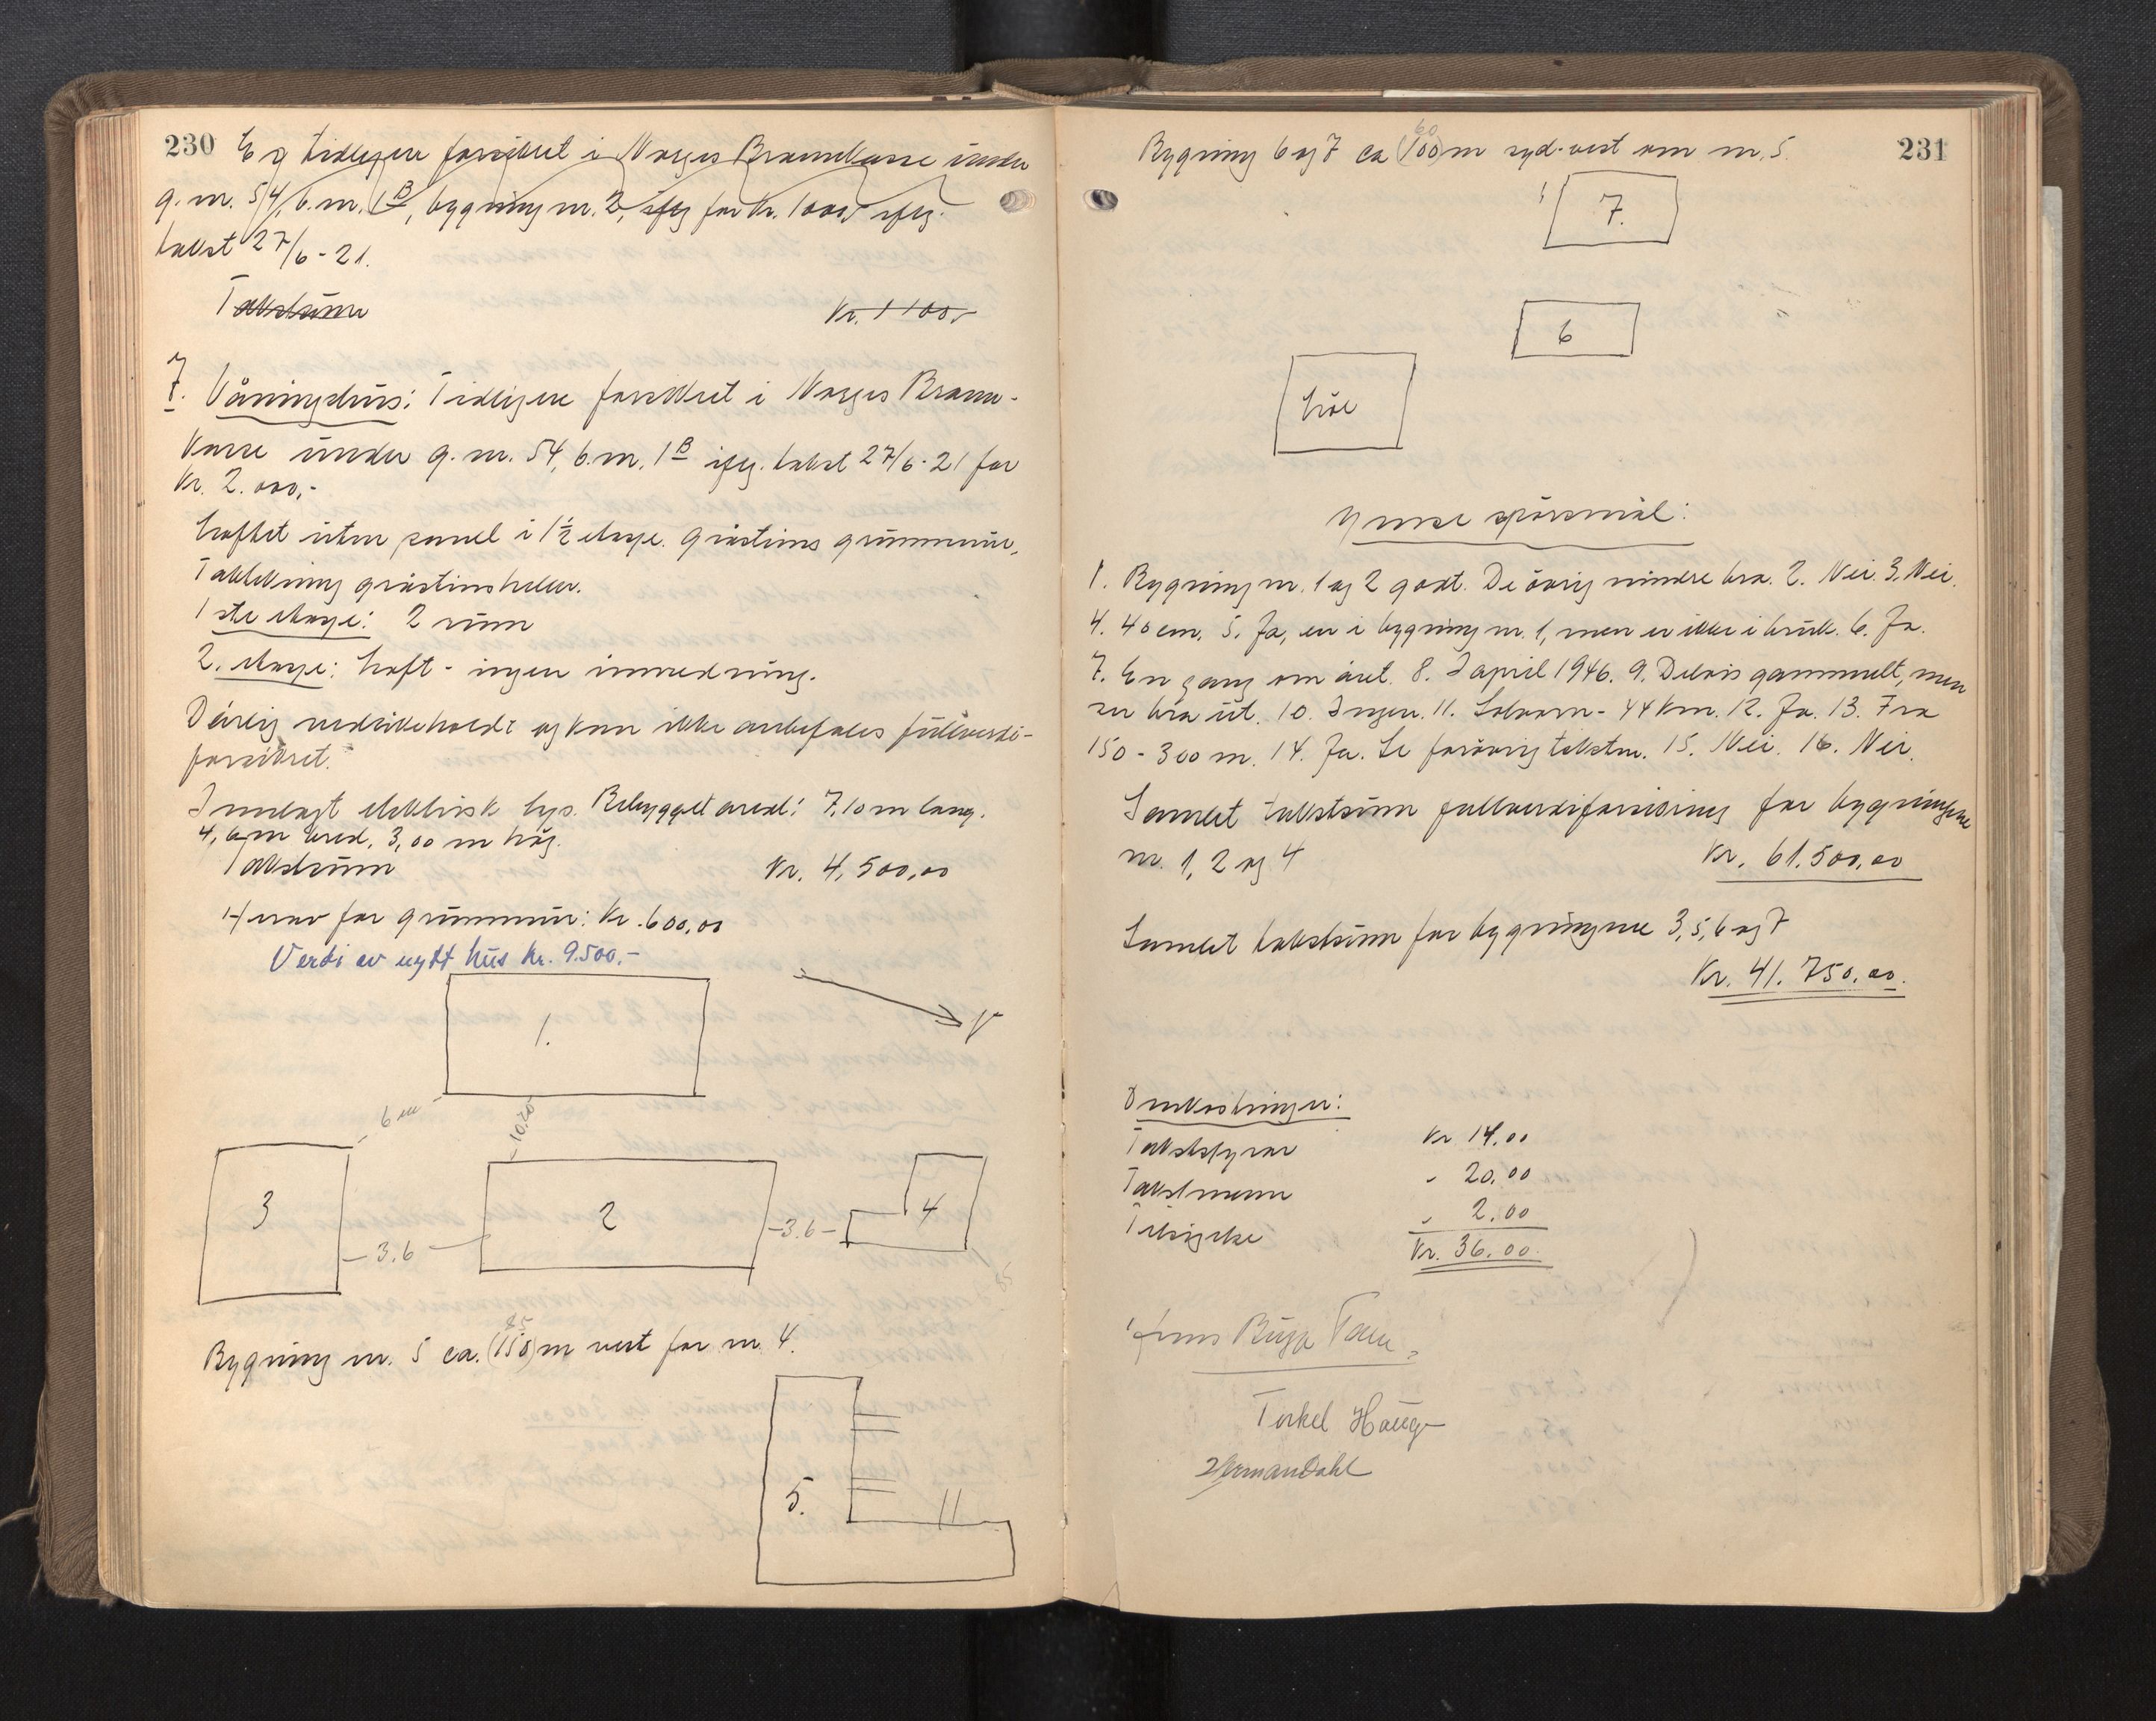 230
Er tidligere forsikret i Norges Brannkasse under
g.nr. 54, b.nr. 1B, bygning nr. 2, for kr. 1000,- iflg.
takst 27/6-21.
Takstsum Kr. 1100,-
7. Våningshus: Tidligere forsikret i Norges Brann-
kasse under g.nr. 54, b.nr. 1B iflg. takst 27/6-21 for
kr. 2.000,-
Laftet uten panel i 1½ etasje. Gråsteins grunnmur,
Taktekning gråsteinsheller.
1ste etasje: 2 rum
2. etasje: Loft - ingen innredning.
Dårlig vedlikeholdt og kan ikke anbefales fullverdi-
forsikret.
Innlagt elektrisk lys. Bebygget areal: 7,10 m lang.
4,6 m bred, 3,00 m høg.
Takstsum Kr. 4,500,00
Herav for grunnmur: Kr. 600,00
Verdi av nytt hus kr. 9.500.-
N
1.
6 m
10.20
3
2
4
3.6
3.6
85
85
Bygning nr. 5 ca. (150) m vest for nr. 4.
5.
231
60
Bygning 6 og 7 ca (100) m syd-vest om nr. 5.
7.
6
Løe
Ymse spørsmål:
1. Bygning nr. 1 og 2 godt. De øvrig mindre bra. 2. Nei. 3. Nei.
4. 40 cm. 5. Ja, en i bygning nr. 1, men er ikke i bruk. 6. Ja.
7. En gang om året. 8. I april 1946. 9. Delvis gammelt, men
ser bra ut. 10. Ingen. 11. - 44 km. 12. Ja. 13. Fra
150 - 300 m. 14. Ja. Se forøvrig teksten. 15. Nei. 16. Nei.
Samlet takstsum fullverdiforsikring for bygningene
nr. 1, 2 og 4 Kr. 61.500,00
Samlet takstsum for bygningene 3, 5, 6 og 7
Kr. 41.750.00.
Omkostninger:
Takstbestyrer kr 14.00
Takstmenn " 20,00
" 2.00
Kr. 36.00.
Torkel Haug
Herman Dahl